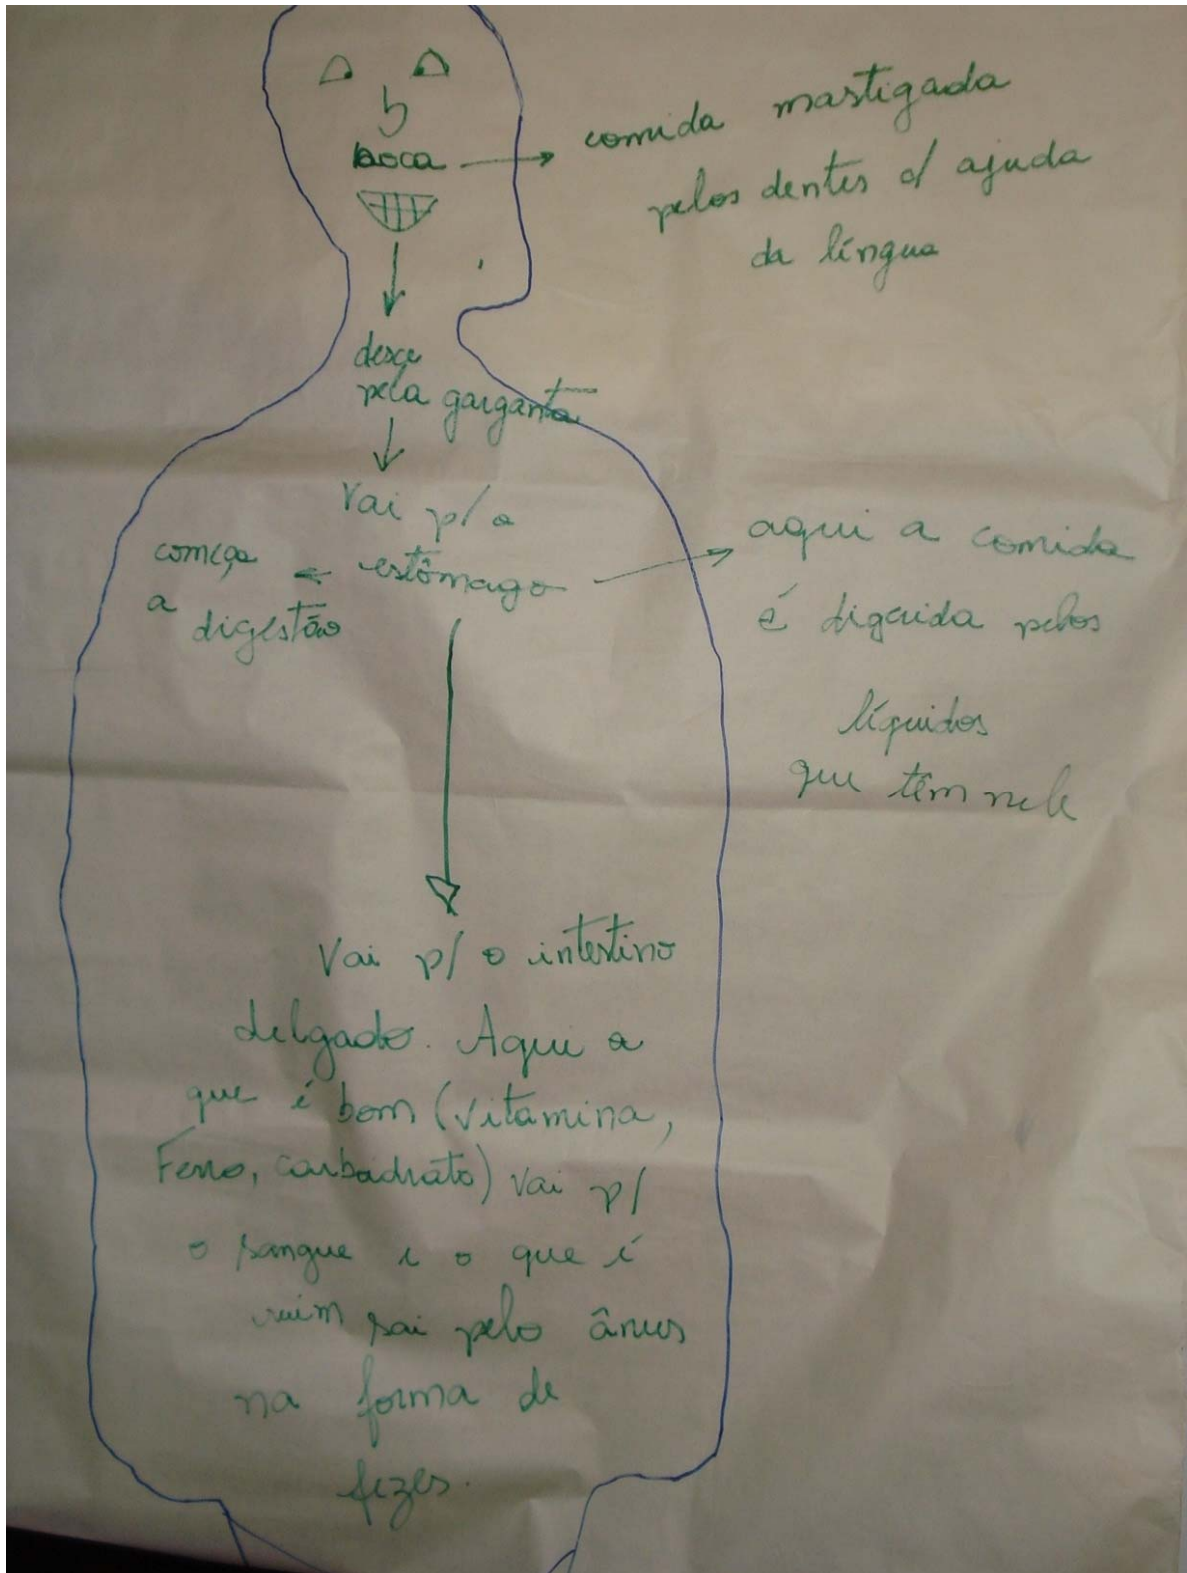 boca
comida mastigada
pelos dentes c/ ajuda
da língua
desce
pela garganta
Vai p/ o
estômago
começa
a digestão
aqui a comida
é digerida pelos
líquidos
que têm nele
Vai p/ o intestino
delgado. Aqui o
que é bom (vitamina,
Ferro, carbadrato) vai p/
o sangue e o que é
ruim sai pelo ânus
na forma de
fezes.